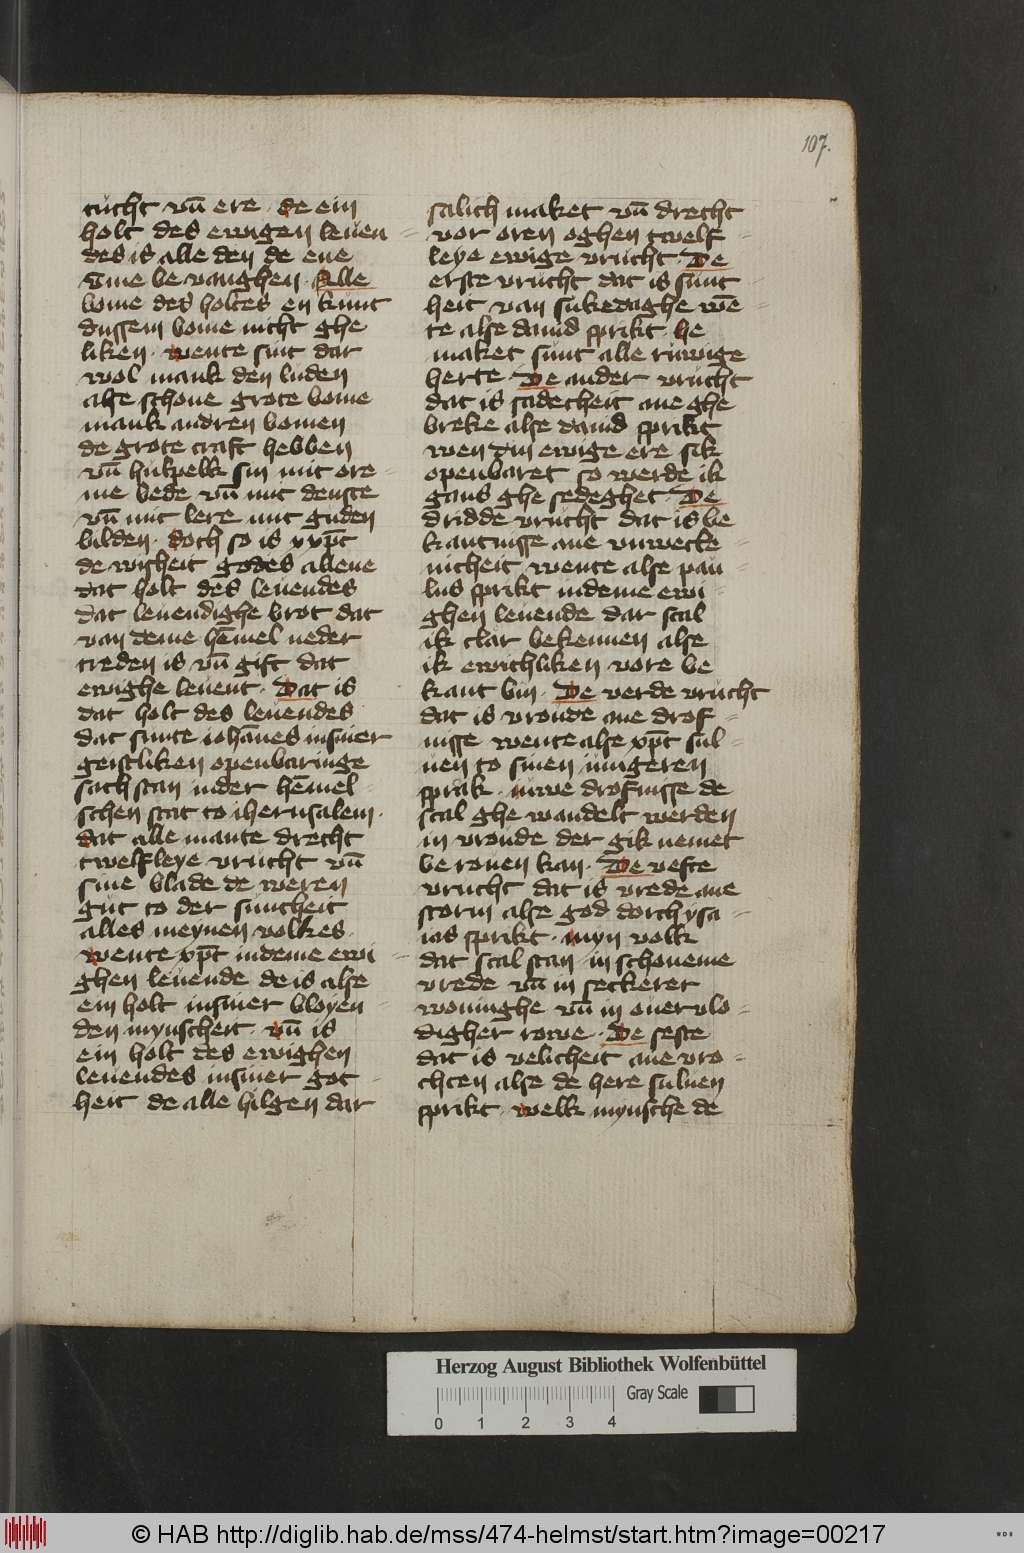 107.
tucht vn̄ ere · de ein
holt des ewigen leuen-
des is alle den de ene
Gme be vanghen · Alle
bome des holtes en kunt
dussem bome nicht ghe
liken · wente sint dar
wol mank den luden
alse schone grote bome
mank andren bomen
de grote craft hebben
vn̄ hulpelk sin mit ore-
me bede vn̄ mit denste
vn̄ mit lere mit guden
bilden · doch so is xp̄c
de wisheit godes allene
dat holt des leuendes
dat leuendighe brot dat
van deme hēmel neder
treden is vn̄ gift dat
ewighe leuent · Dat is
dat holt des leuendes
dat sunte iohānes in siner
geistliken openbaringe
sach stan in der hēmel
schen stat to iherusalem ·
dat alle mante drecht
twelfleye vrucht vn̄
sine blade de weren
gut to der suntheit
alles meynen volkes ·
wente xp̄c in deme ewi-
ghen leuende de is alse
ein holt in siner bloyen
den mynscheit · vn̄ is
ein holt des ewighen
leuendes in siner got-
heit de alle hilgen dar
salich maket vn̄ drecht
vor oren oghen twelf-
leye ewige vrucht · De
erste vrucht dat is sunt-
heit van sukedaghe wē-
te alse dauid sprikt he
maket sunt alle ruwige
herte De ander vrucht
dat is sadecheit ane ghe
breke alse dauid sprikt
wen din ewige ere sik
openbaret so werde ik
gans ghe sedeghet · De
dridde vrucht dat is be
kantnisse ane vnwecke-
nicheit wente alse pau-
lus sprikt in deme ewi-
ghen leuende dar scal
ik clar bekennen alse
ik ewichliken vore be
kant bin · De verde vrucht
dat is vroude ane drof-
nisse wente alse xp̄c sul-
uen to sinen iungeren
sprak · iuwe drofnisse de
scal ghe wandelt werden
in vroude der gik nemet
be rouen kan · De vefte
vrucht dat is vrede ane
storm alse god dorch ysa-
ias sprikt · myn volk
dat scal stan in schoneme
vrede vn̄ in seckerer
woninghe vn̄ in ouer vlo-
digher rowe · De seste
dat is velicheit ane vro-
chten alse de here suluen
sprikt · welk mynsche de
Herzog August Bibliothek Wolfenbüttel
Gray Scale
0 1 2 3 4
© HAB http://diglib.hab.de/mss/474-helmst/start.htm?image=00217